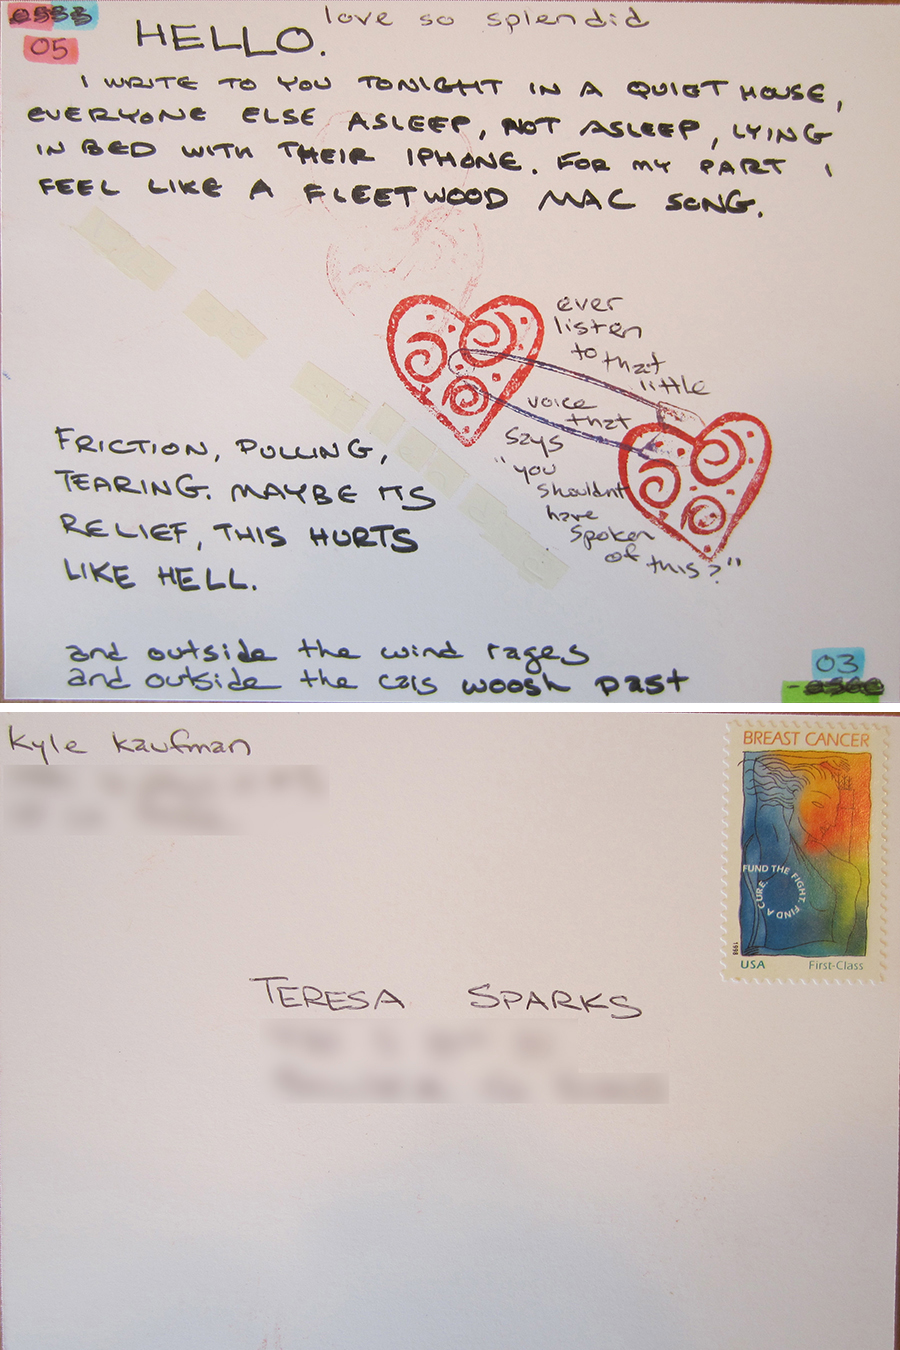 love so splendid
05
HELLO.
I WRITE TO YOU TONIGHT IN A QUIET HOUSE,
EVERYONE ELSE ASLEEP, NOT ASLEEP, LYING
IN BED WITH THEIR IPHONE. FOR MY PART I
FEEL LIKE A FLEETWOOD MAC SONG.
ever
listen
to that
little
voice
that
says
"you
shouldnt
have
spoken
of this?"
FRICTION, PULLING,
TEARING. MAYBE ITS
RELIEF, THIS HURTS
LIKE HELL.
and outside the wind rages
and outside the cars woosh past
03
Kyle Kaufman
BREAST CANCER
FUND THE FIGHT. FIND A CURE.
1998
USA First-Class
TERESA SPARKS